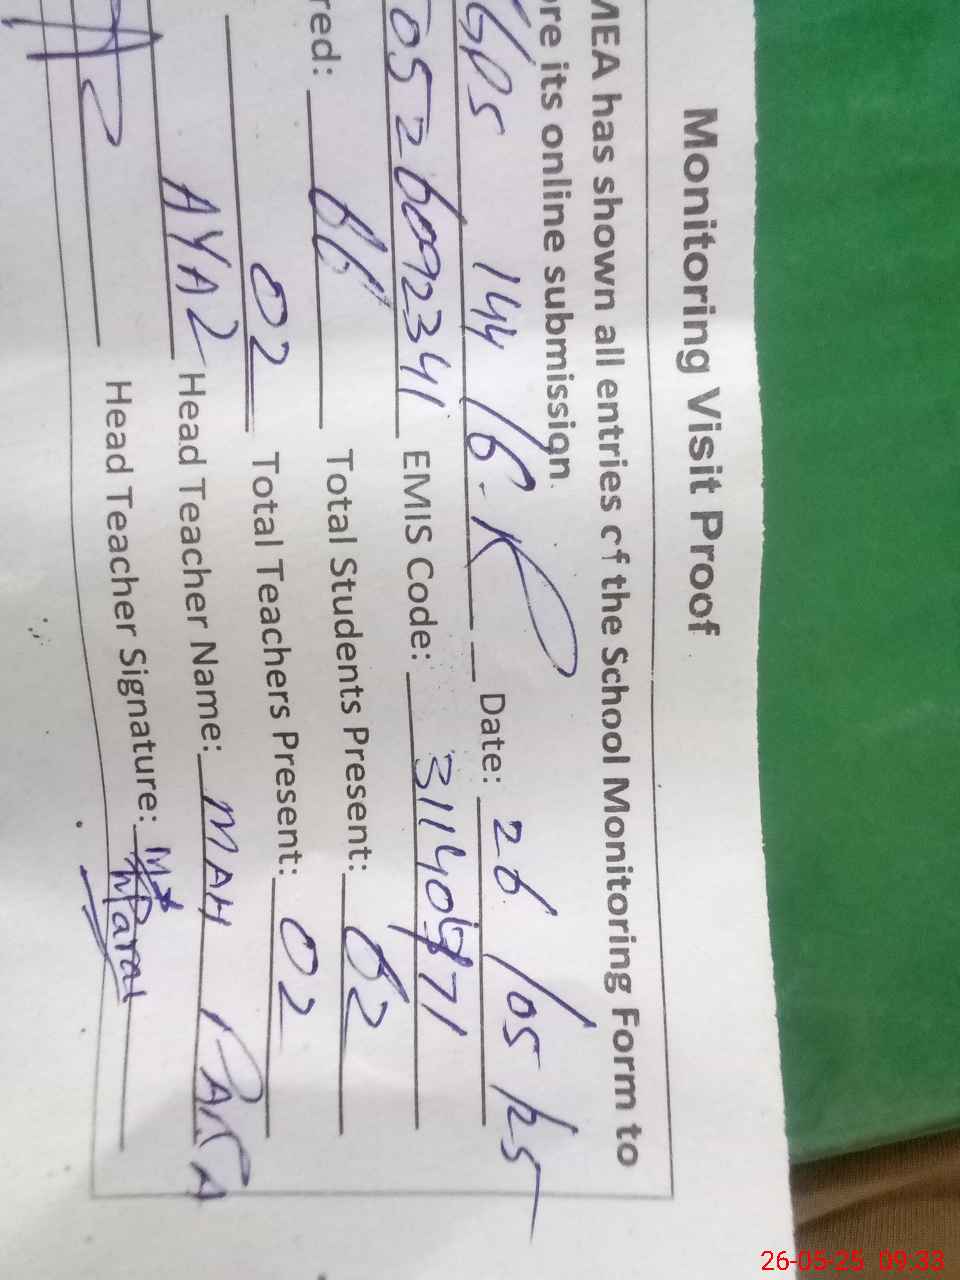 Monitoring Visit Proof
MEA has shown all entries of the School Monitoring Form to
ore its online submission.
GPS 144/6-R Date: 26/05/25
0526092341 EMIS Code: 31140571
red: 66 Total Students Present: 62
02 Total Teachers Present: 02
AYAZ Head Teacher Name: MAH PARA
Head Teacher Signature:
26-05-25 09:33